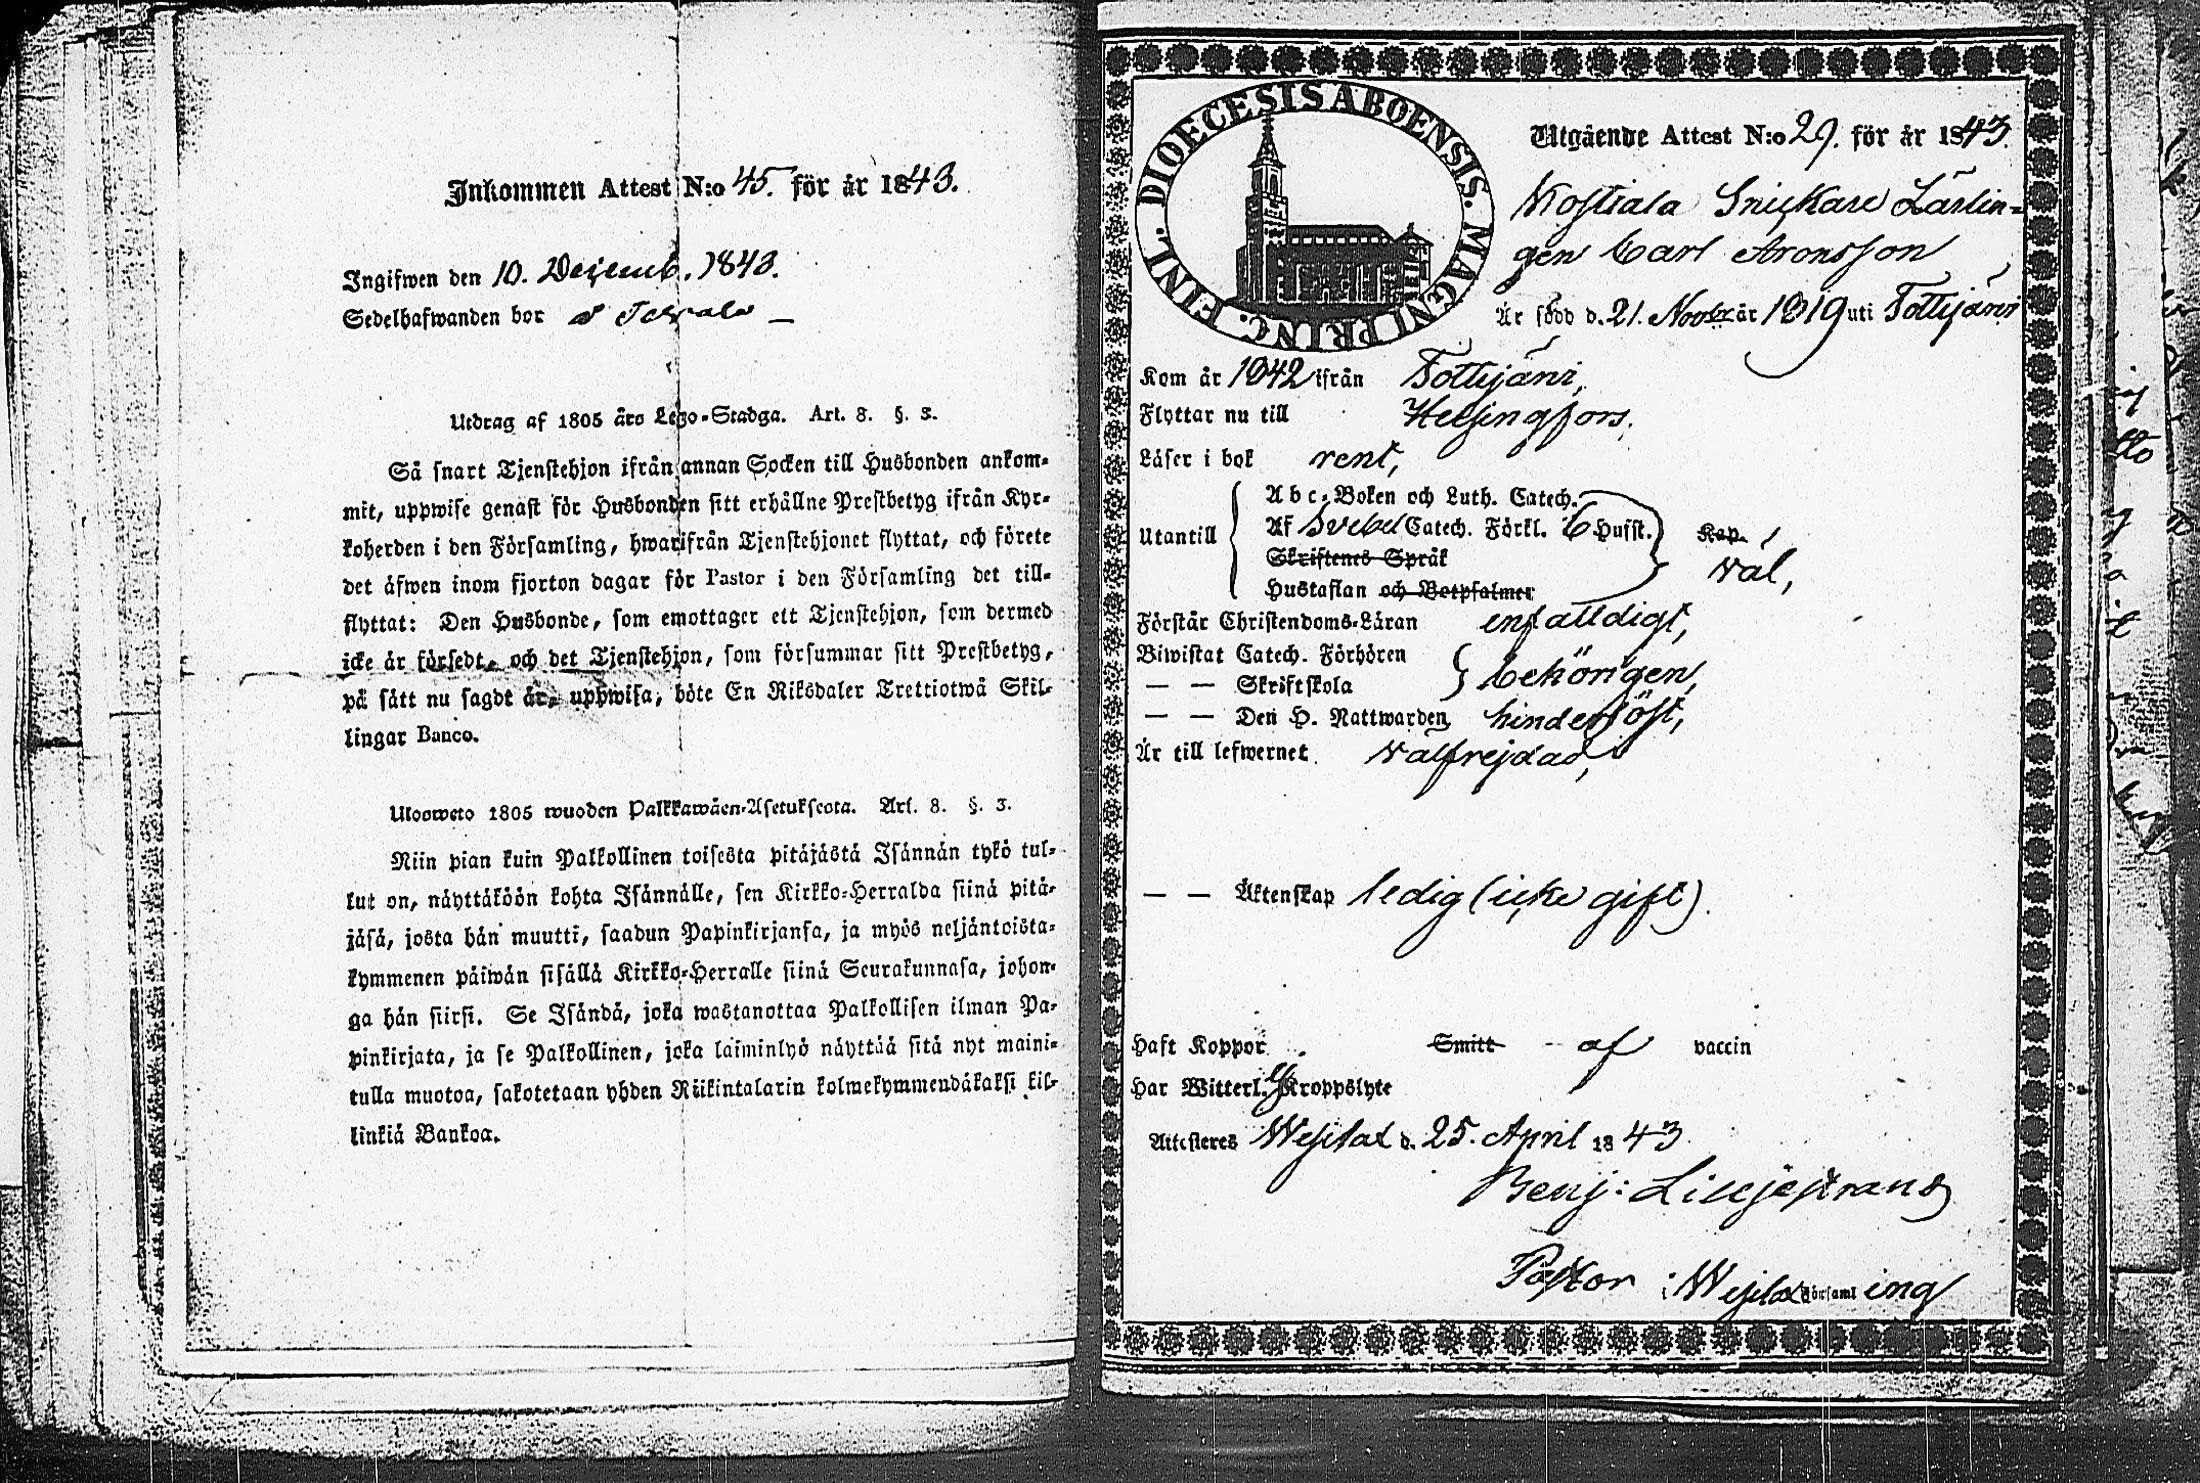 Inkommen Attest N:o 45. för år 1843.
Ingifwen den 10. Decemb. 1843.
Sedelhafwanden bor
Utdrag af 1805 års Lego-Stadga. Art. 8. §. 3.
Så snart Tjenstehjon ifrån annan Socken till Husbonden ankom-
mit, uppwise genast för Husbonden sitt erhållne Prestbetyg ifrån Kyr-
koherden i den Församling, hwarifrån Tjenstehjonet flyttat, och förete
det äfwen inom fjorton dagar för Pastor i den Församling det till-
flyttat: Den Husbonde, som emottager ett Tjenstehjon, som dermed
icke är försedt, och det Tjenstehjon, som försummar sitt Prestbetyg,
på sätt nu sagdt är, uppwisa, böte En Riksdaler Trettiotwå Skil-
lingar Banco.
Ulosweto 1805 wuoden Palkkawäen-Asetuksesta. Art. 8. §. 3.
Niin pian kuin Palkollinen toisesta pitäjästä Isännän tykö tul-
lut on, näyttäköön kohta Isännälle, sen Kirkko-Herralda siinä pitä-
jäsä, josta hän muutti, saadun Papinkirjansa, ja myös neljäntoista-
kymmenen päiwän sisällä Kirkko-Herralle siinä Seurakunnasa, johon-
ga hän siirsi. Se Isändä, joka wastanottaa Palkollisen ilman Pa-
pinkirjata, ja se Palkollinen, joka laiminlyö näyttää sitä nyt maini-
tulla muotoa, sakotetaan yhden Riikintalarin kolmekymmendäkaksi kil-
linkiä Bankoa.
DIOECESIS ABOENSIS. MAGNI PRINC. FINL.
Utgående Attest N:o 29. för år 1843.
Snickare Lärlin-
gen Carl Aronsson
Är född d. 21. Novbr år 1819 uti Tottijärvi
Kom år 1842 ifrån Tottijärvi,
Flyttar nu till Helsingfors.
Läser i bok rent,
Utantill
Abc-Boken och Luth. Catech.
Af Svebel Catech. Förkl. 6 Hufst. Kap.
Skriftenes Språk
väl,
Hustaflan och Botpsalmer
Förstår Christendoms-Läran enfalldigt,
Biwistat Catech. Förhören
behörigen,
— — Skriftskola
— — Den H. Nattwarden hinderlöst,
Är till lefwernet välfrejdad,
— — Äktenskap ledig (icke gift).
Haft Koppor Smitt af vaccin
Har Witterl. ej Kroppslyte
Attesteres Wesilax d. 25. April 1843
Benj: Lilljestrand
Pastor i Wesilax Församling